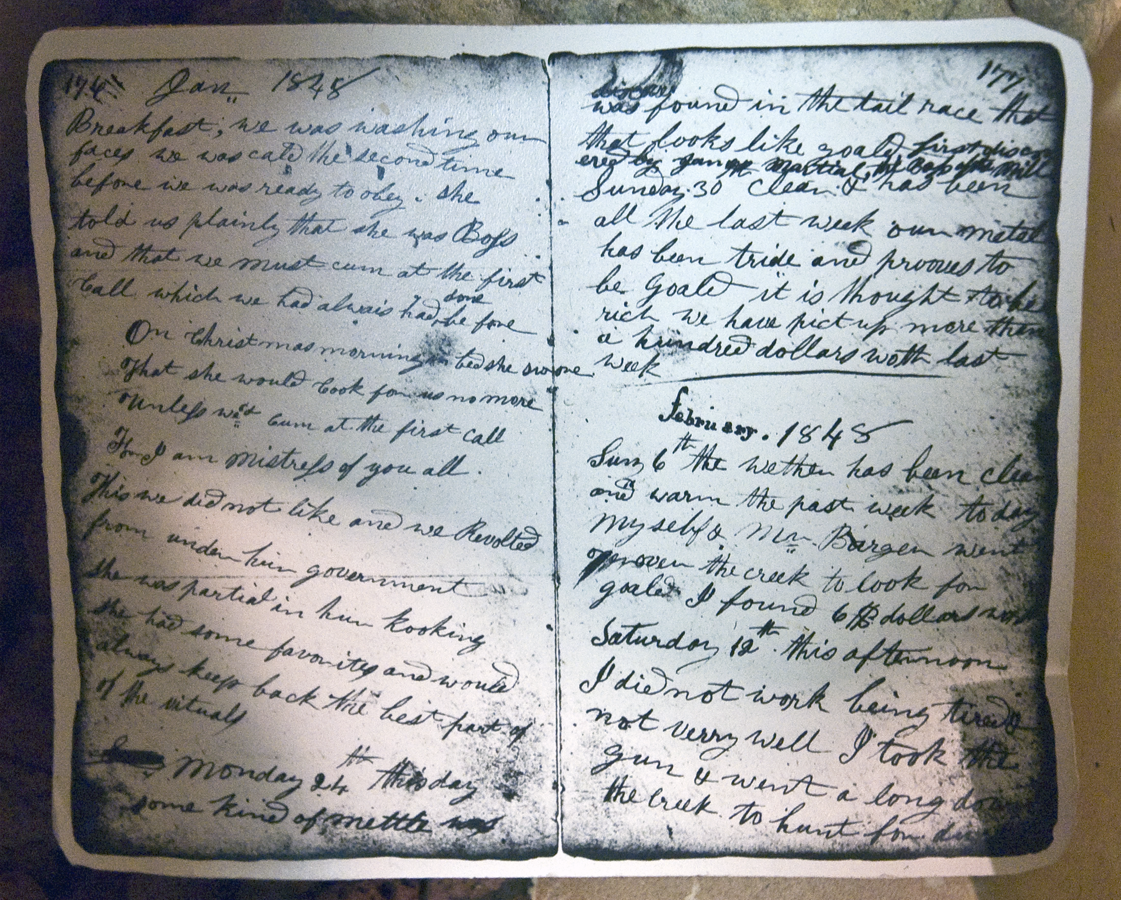 Jan,, 1848
Breakfast; we was washing our
faces we was cald the second time
before we was ready to obey. she
told us plainly that she was Boss
and that we must cum at the first
Call which we had alwais done
be fore
On Christmas morning in bed she swore
That she would Cook for us no more
Unless we'd Cum at the first call
For I am Mistress of you all.
This we did not like and we Revolted
from under hur government
she was partial in hur kooking
she had some favorites and would
always keep back the best part of
of the vituals
Monday 24th this day
some kind of mettle was
177
discovered
was found in the tail race that
that looks like goald first discov
ered by James Martial, the Boss of the Mill
Sunday 30th Clear & has been
all the last week our metal
has been tride and prooves to
be Goald it is thought to be
rich we have pict up more than
a hundred dollars woth last
week
February. 1848
Sun, 6th the wether has been clear
and warm the past week today
myself & Mr,, Bargen went
over the creek to look for
goald I found 6$ dollars
Saturday 12th this afternoon
I did not work being tired
not verry well I took the
gun & went a long down
the Creek to hunt for